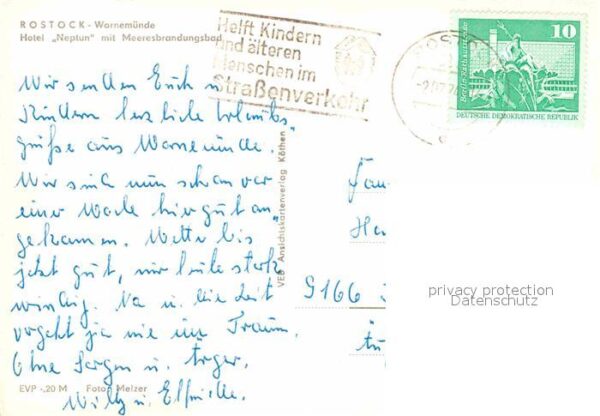 ROSTOCK - Warnemünde
Hotel „Neptun" mit Meeresbrandungsbad
Helft Kindern
und älteren
Menschen im
Straßenverkehr
10
Berlin-Rathausstraße
DEUTSCHE DEMOKRATISCHE REPUBLIK
Wir senden Euch u.
Kindern herzliche Urlaubs
grüße aus Warnemünde.
Wir sind nun schon vor
einer Woche hier gut an-
gekommen. Wetter bis
jetzt gut, nur heute stark
windig. Na u. die Zeit
vergeht ja wie im Traum.
Ohne Sorgen u. Ärger.
Willy u. Elfriede.
VEB Ansichtskartenverlag Köthen
Fam
9166
privacy protection
Datenschutz
EVP -,20 M Foto: Melzer